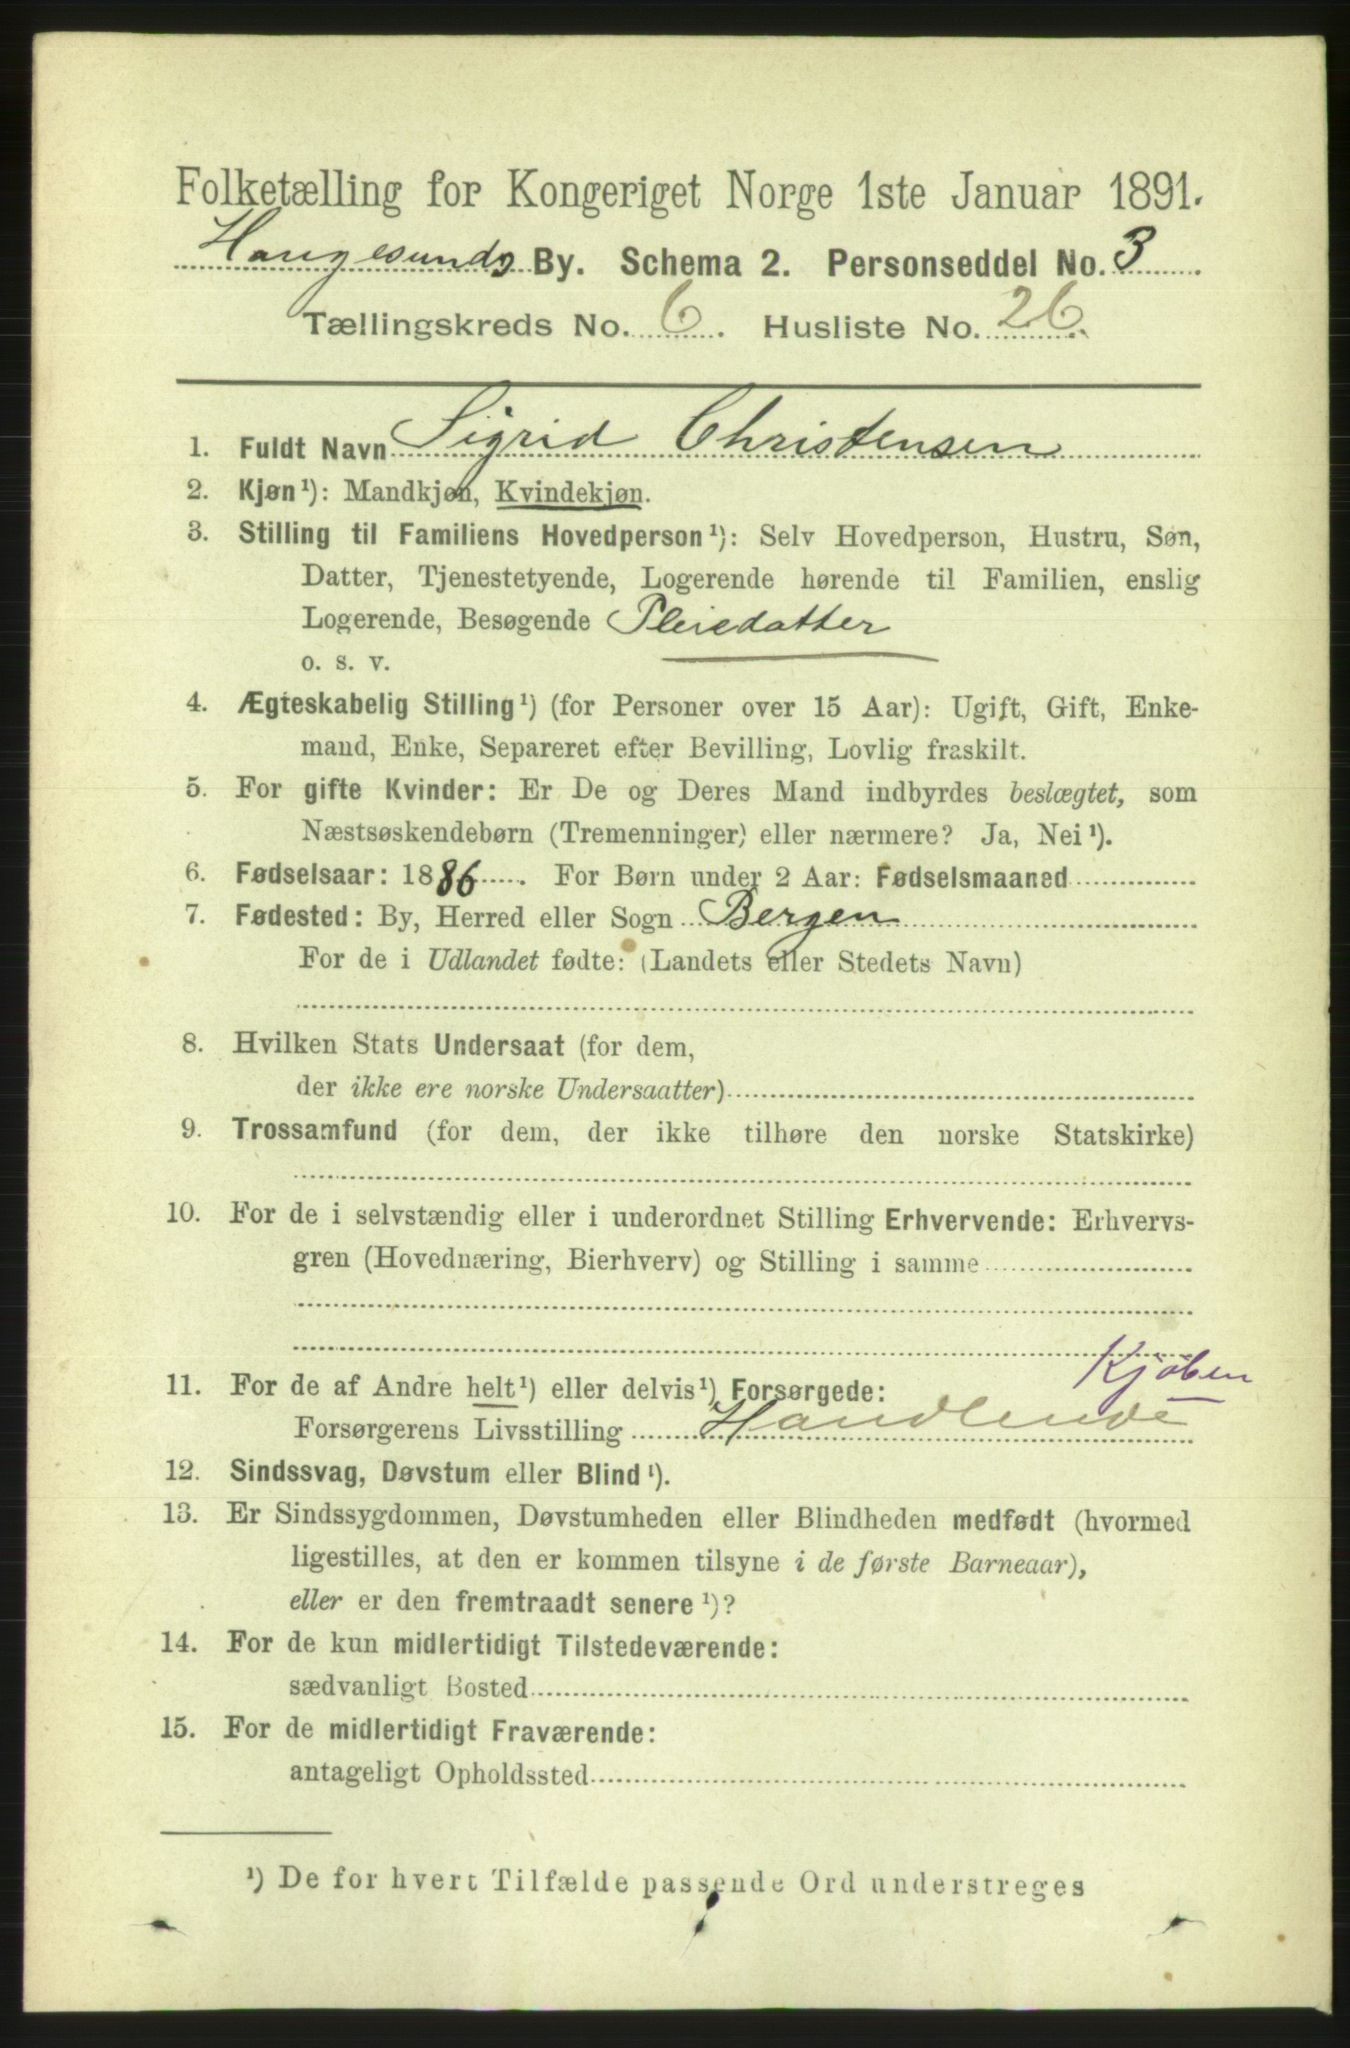 Folketælling for Kongeriget Norge 1ste Januar 1891.
Haugesunds By. Schema 2. Personseddel No. 3
Tællingskreds No. 6. Husliste No. 26.
1. Fuldt Navn Sigrid Christensen
2. Kjøn¹): Mandkjøn, Kvindekjøn.
3. Stilling til Familiens Hovedperson¹): Selv Hovedperson, Hustru, Søn,
Datter, Tjenestetyende, Logerende hørende til Familien, enslig
Logerende, Besøgende Pleiedatter
o. s. v.
4. Ægteskabelig Stilling¹) (for Personer over 15 Aar): Ugift, Gift, Enke-
mand, Enke, Separeret efter Bevilling, Lovlig fraskilt.
5. For gifte Kvinder: Er De og Deres Mand indbyrdes beslægtet, som
Næstsøskendebørn (Tremenninger) eller nærmere? Ja, Nei¹).
6. Fødselsaar: 1886. For Børn under 2 Aar: Fødselsmaaned
7. Fødested: By, Herred eller Sogn Bergen
For de i Udlandet fødte: (Landets eller Stedets Navn)
8. Hvilken Stats Undersaat (for dem,
der ikke ere norske Undersaatter)
9. Trossamfund (for dem, der ikke tilhøre den norske Statskirke)
10. For de i selvstændig eller i underordnet Stilling Erhvervende: Erhvervs-
gren (Hovednæring, Bierhverv) og Stilling i samme
Kjøben
11. For de af Andre helt¹) eller delvis¹) Forsørgede:
Forsørgerens Livsstilling Handlende
12. Sindssvag, Døvstum eller Blind¹).
13. Er Sindssygdommen, Døvstumheden eller Blindheden medfødt (hvormed
ligestilles, at den er kommen tilsyne i de første Barneaar),
eller er den fremtraadt senere¹)?
14. For de kun midlertidigt Tilstedeværende:
sædvanligt Bosted
15. For de midlertidigt Fraværende:
antageligt Opholdssted
¹) De for hvert Tilfælde passende Ord understreges